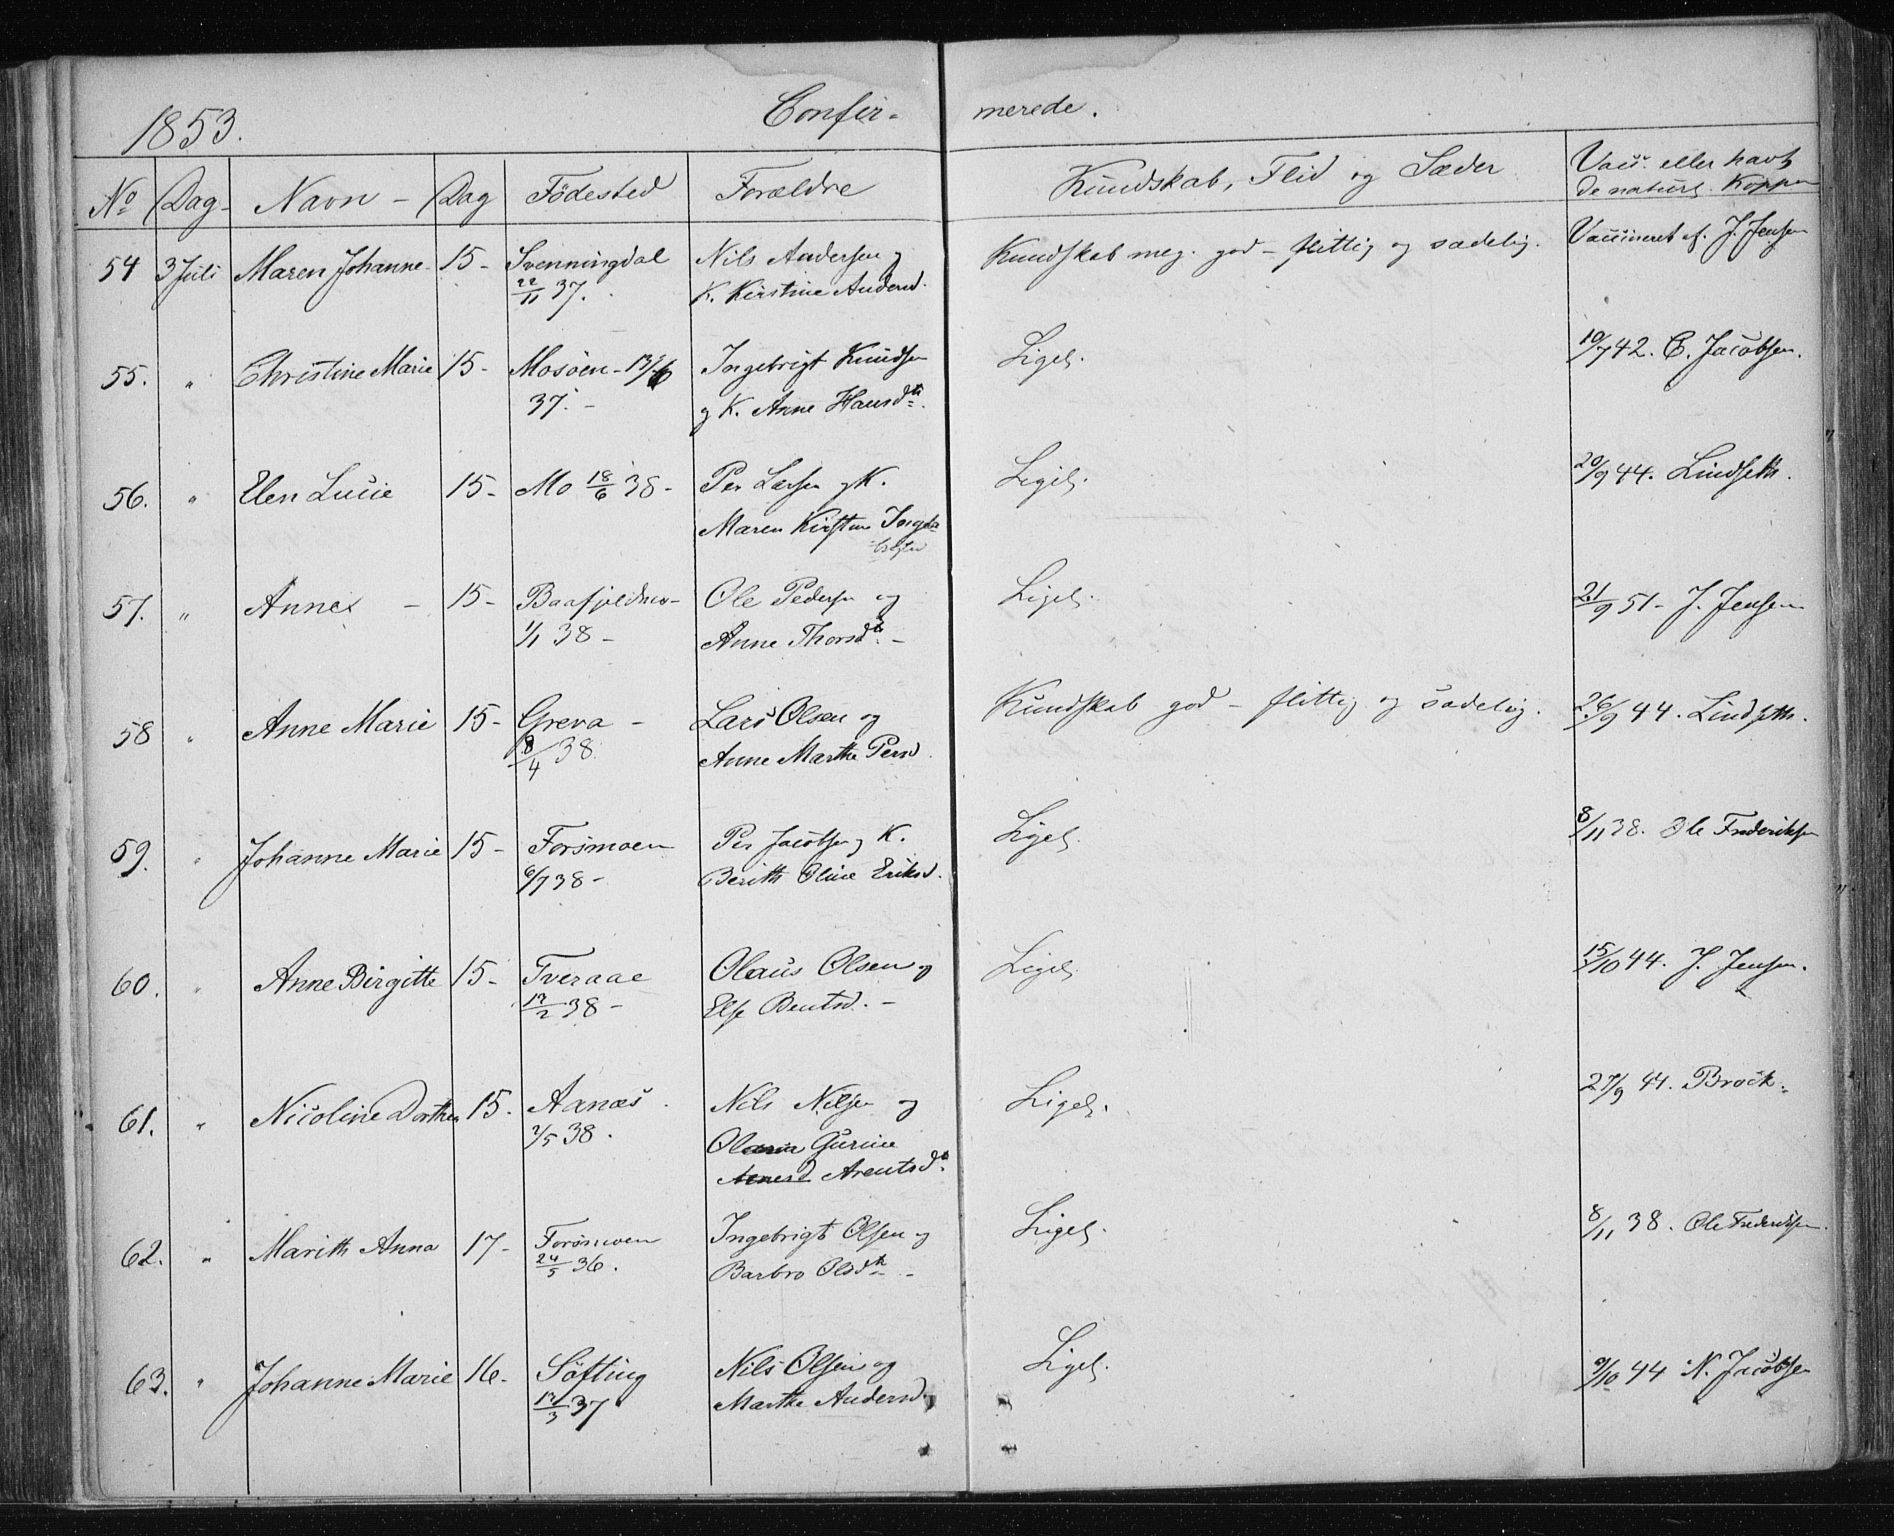 1853.
Confir- merede.
No Dag- Navn - Dag Födested Forældre Kundskab, Flid og Sæder Vacc. eller havt
de naturl. Kopper
54 3 Juli Maren Johanne 15- Svenningdal Nils Andersen og Kundskab meg. god - flittig og sædelig. Vaccineret af. J. Jensen
22/11 37. K. Kirstine Andersd.
55. " Christine Marie 15- Mosöen - Ingebrigt Knudsen Ligel. 10/7 42. C. Jacobsen.
37. - og K. Anne Hansdtr.
56. " Elen Lucie 15- Mo 18/6 38- Per Larsen og K. Ligel. 20/9 44. Lindseth.
Maren Kirstine
57. " Anne - 15- Ole Pedersen og Ligel. 21/9 51- J. Jensen
1/1 38- Anne Thorsdtr. -
58 " Anne Marie 15- Greva - Lars Olsen og Kundskab god - flittig og sædelig. 26/9 44. Lindseth.
8/4 38. Anne Marthe Persd.
59. " Johanne Marie 15- Forsmoen Per Jacobsen og K. Ligel. 8/11 38. Ole Frederiksen
6/7 38- Berith Oline Eriksd.
60. " Anne Birgitte 15- Tveraae Olaus Olsen og Ligel. 15/10 44. J. Jensen.
17/2 38- Else Bentsd. -
61. " Nicoline Dorthea 15. Aanæs. Nils Nilsen og Ligel. 27/9 44. Brock.
38. Gurine
Arentsdtr.
62. " Marith Anna 17- Forsmoen Ingebrigt Olsen og Ligel. 8/11 38. Ole Frederiksen.
24/5 36. Barbro Olsdtr. -
63. " Johanne Marie 16- Söfting Nils Olsen og Ligel. 9/10 44 N. Jacobsen
17/3 37 Marthe Andersd.